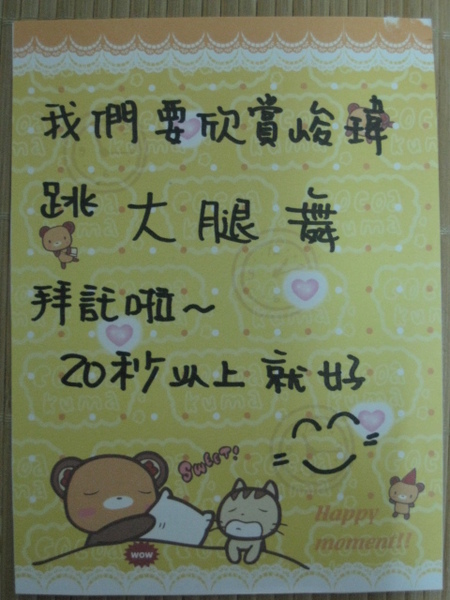 我們要欣賞峻瑋
跳大腿舞
拜託啦~
20秒以上就好
Sweet!
WOW
Happy
moment!!